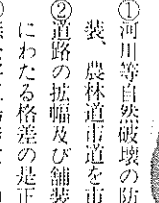 ①河川等自然破壊の防
装、農林道市道を市
②道路の拡幅及び舗装
にわたる格差の是正